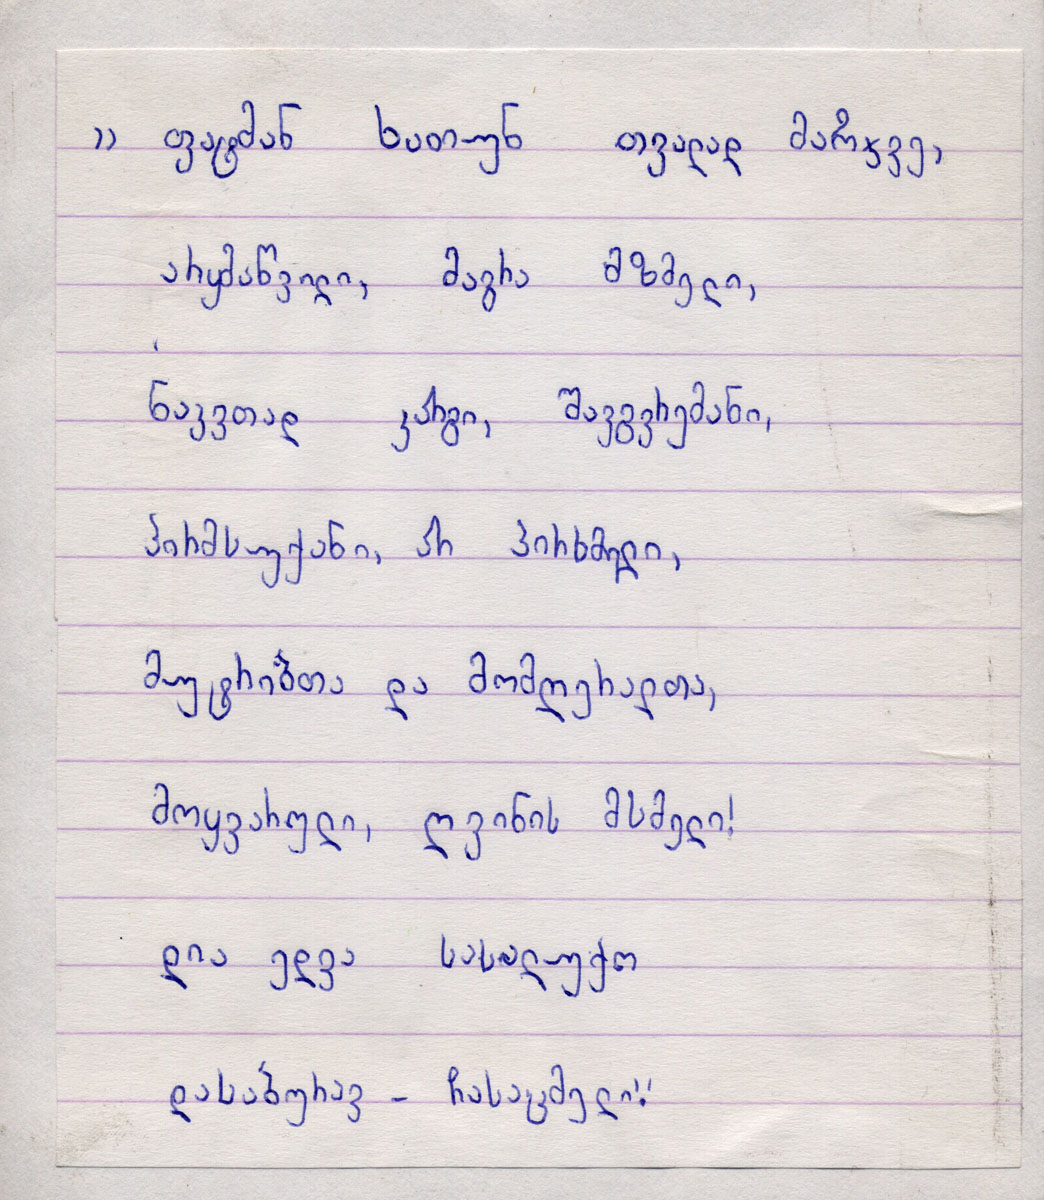 „ ფატმან ხათუნ თვალად მარჯვე,
არყმაწვილი, მაგრა მზმელი,
ნაკვთად კარგი, შავგვრემანი,
პირმსუქანი, არ პირხმელი,
მუტრიბთა და მომღერალთა,
მოყვარული, ღვინის მსმელი!
დია ედვა სასალუქო
დასაბურავ - ჩასაცმელი!"